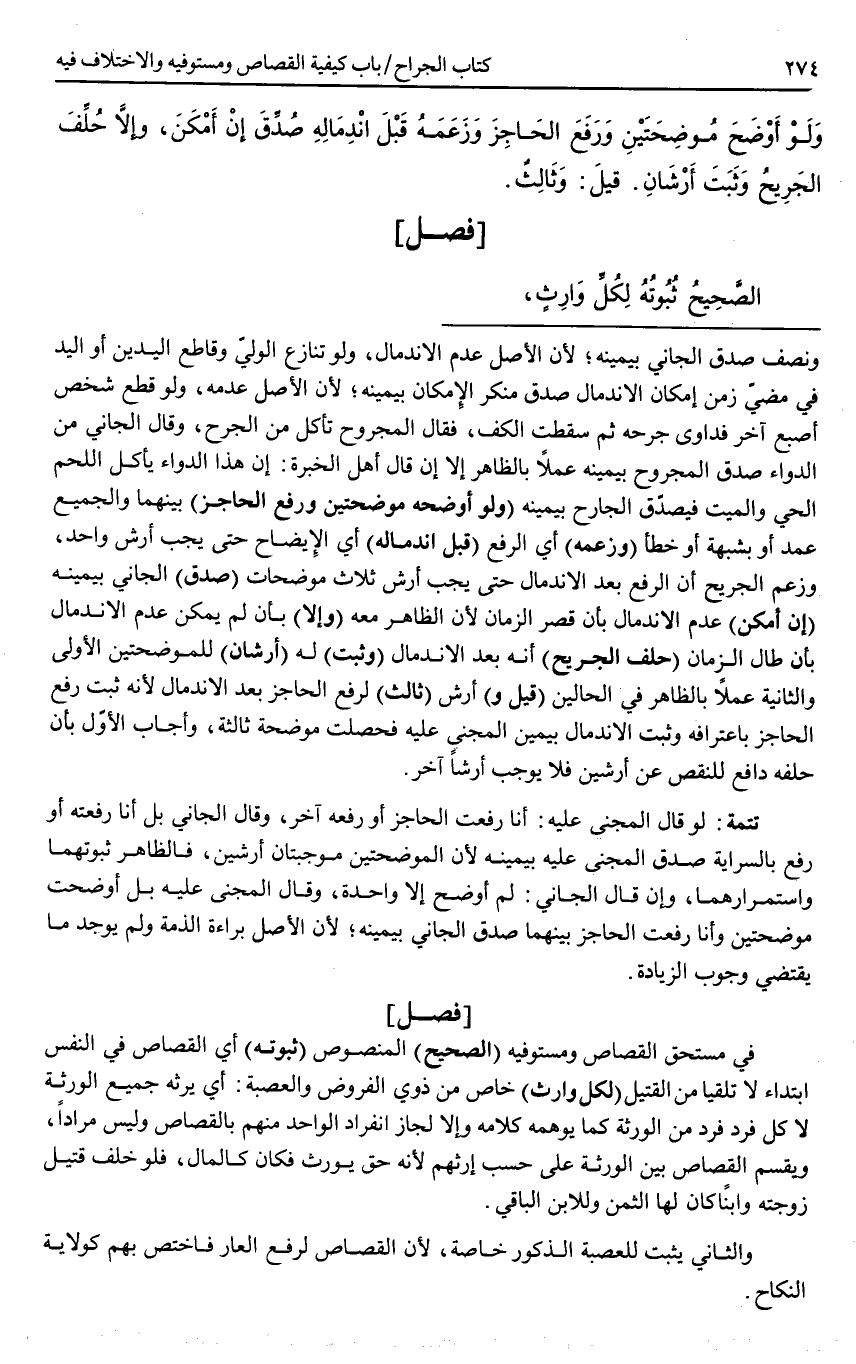 ٢٧٤ كتاب الجراح/ باب كيفية القصاص ومستوفيه والاختلاف فيه
وَلَوْ أَوْضَحَ مُوضِحَتَيْنِ وَرَفَعَ الحَاجِزَ وَزَعَمَهُ قَبْلَ انْدِمَالِهِ صُدِّقَ إنْ أَمْكَنَ، وإلاَّ حُلِّفَ
الجَرِيحُ وَثَبَتَ أَرْشَانِ. قيلَ: وَثَالِثٌ.
[فصـل]
الصَّحِيحُ ثُبُوتُهُ لِكُلِّ وَارِثٍ،
ونصف صدق الجاني بيمينه؛ لأن الأصل عدم الاندمال، ولو تنازع الوليّ وقاطع اليدين أو اليد
في مضيّ زمن إمكان الاندمال صدق منكر الإمكان بيمينه؛ لأن الأصل عدمه، ولو قطع شخص
أصبع آخر فداوى جرحه ثم سقطت الكف، فقال المجروح تأكل من الجرح، وقال الجاني من
الدواء صدق المجروح بيمينه عملاً بالظاهر إلا إن قال أهل الخبرة: إن هذا الدواء يأكل اللحم
الحي والميت فيصدّق الجارح بيمينه (ولو أوضحه موضحتين ورفع الحاجز) بينهما والجميع
عمد أو بشبهة أو خطأ (وزعمه) أي الرفع (قبل اندماله) أي الإيضاح حتى يجب أرش واحد،
وزعم الجريح أن الرفع بعد الاندمال حتى يجب أرش ثلاث موضحات (صدق) الجاني بيمينه
(إن أمكن) عدم الاندمال بأن قصر الزمان لأن الظاهر معه (وإلا) بأن لم يمكن عدم الاندمال
بأن طال الزمان (حلف الجريح) أنه بعد الاندمال (وثبت) له (أرشان) للموضحتين الأولى
والثانية عملاً بالظاهر في الحالين (قيل و) أرش (ثالث) لرفع الحاجز بعد الاندمال لأنه ثبت رفع
الحاجز باعترافه وثبت الاندمال بيمين المجنى عليه فحصلت موضحة ثالثة، وأجاب الأوّل بأن
حلفه دافع للنقص عن أرشين فلا يوجب أرشاً آخر.
تتمة: لو قال المجنى عليه: أنا رفعت الحاجز أو رفعه آخر، وقال الجاني بل أنا رفعته أو
رفع بالسراية صدق المجنى عليه بيمينه لأن الموضحتين موجبتان أرشين، فالظاهر ثبوتهما
واستمرارهما، وإن قال الجاني: لم أوضح إلا واحدة، وقال المجنى عليه بل أوضحت
موضحتين وأنا رفعت الحاجز بينهما صدق الجاني بيمينه؛ لأن الأصل براءة الذمة ولم يوجد ما
يقتضي وجوب الزيادة.
[فصـل]
في مستحق القصاص ومستوفيه (الصحيح) المنصوص (ثبوته) أي القصاص في النفس
ابتداء لا تلقيا من القتيل (لكل وارث) خاص من ذوي الفروض والعصبة: أي يرثه جميع الورثة
لا كل فرد فرد من الورثة كما يوهمه كلامه وإلا لجاز انفراد الواحد منهم بالقصاص وليس مراداً،
ويقسم القصاص بين الورثة على حسب إرثهم لأنه حق يورث فكان كالمال، فلو خلف قتيل
زوجته وابنًا كان لها الثمن وللابن الباقي.
والثاني يثبت للعصبة الذكور خاصة، لأن القصاص لرفع العار فاختص بهم كولاية
النكاح.